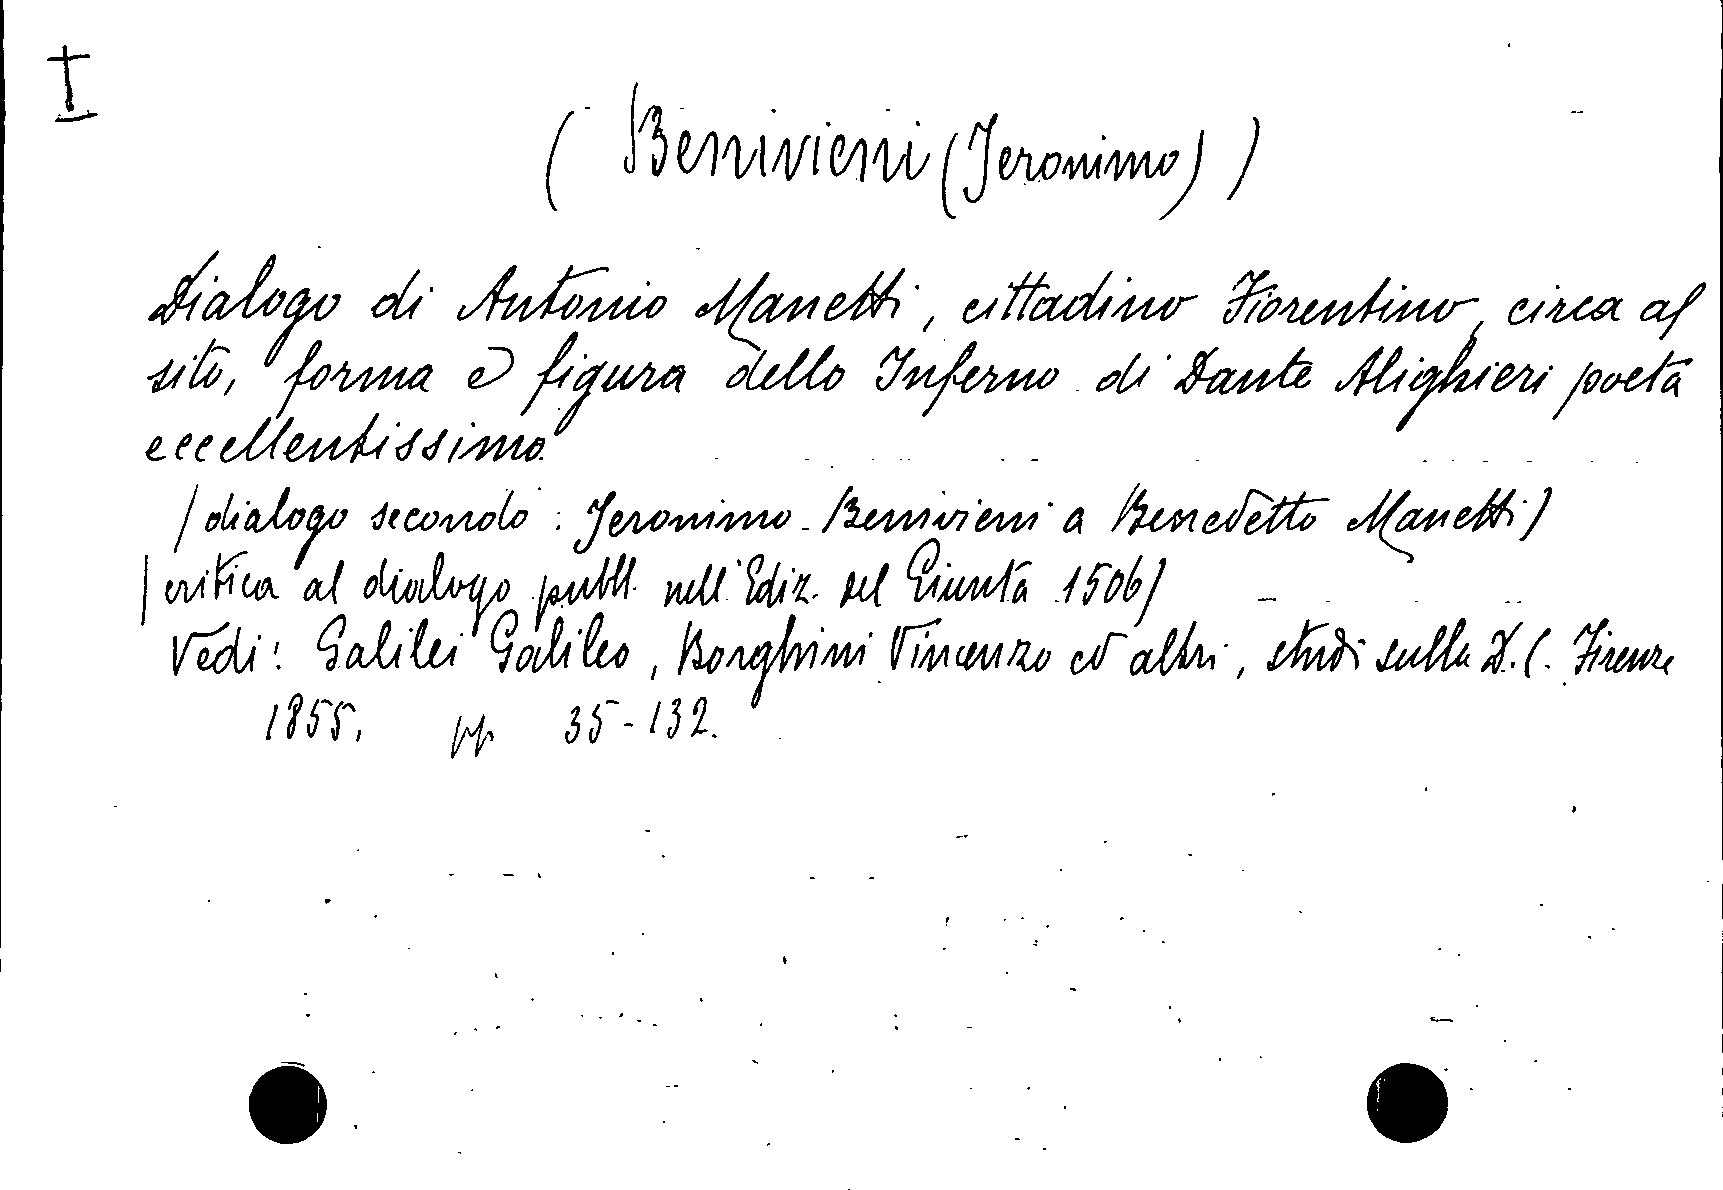 I
( Benivieni (Jeronimo) )
Dialogo di Antonio Manetti, cittadino Fiorentino, circa al
sito, forma e figura dello Inferno di Dante Alighieri poeta
eccellentissimo.
(dialogo secondo : Jeronimo Benivieni a Benedetto Manetti)
(critica al dialogo pubbl. nell'Ediz. del Giunta 1506)
Vedi: Galilei Galileo, Borghini Vincenzo ed altri, studi sulla D.C. Firenze
1855, pp 35-132.